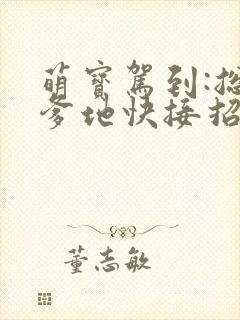 萌寶駕到:總
爹地快接招
董志敏